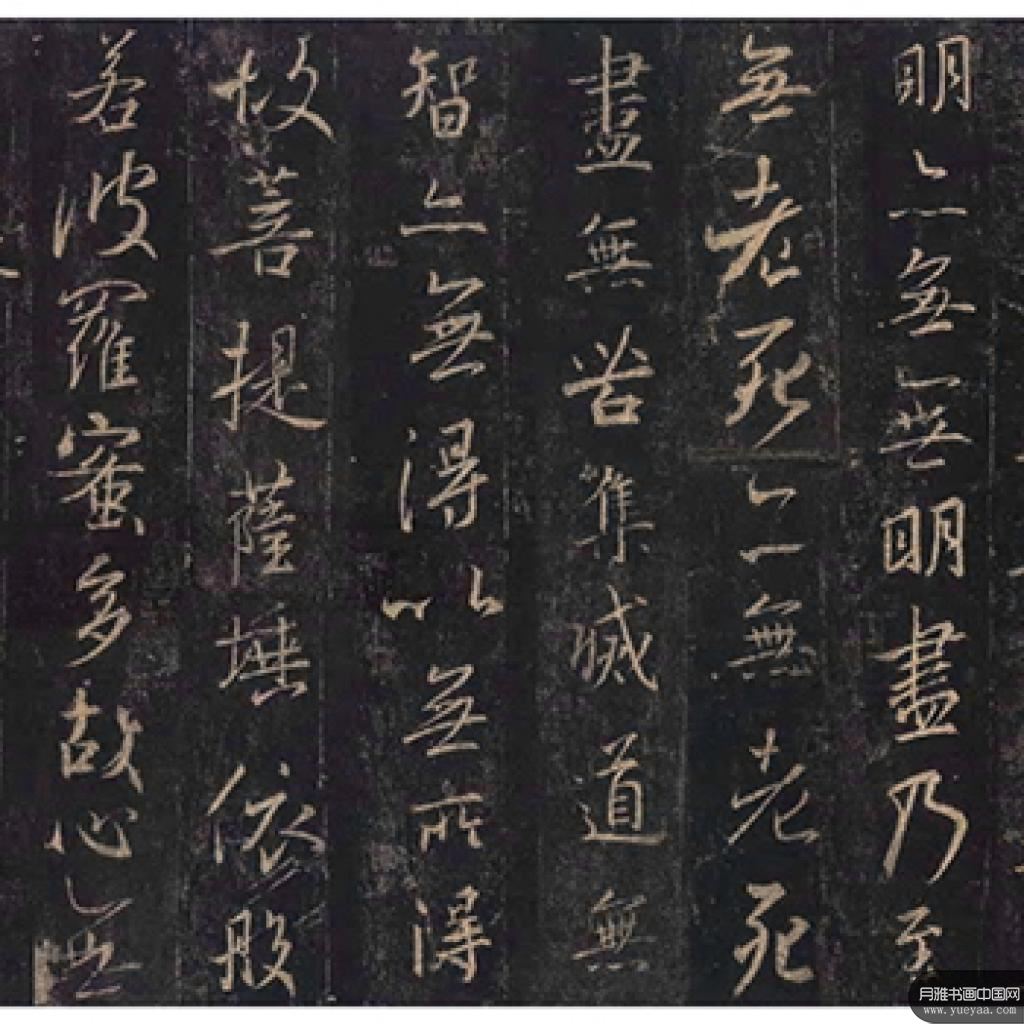 明亦無無明盡乃至
無老死亦無老死
盡無苦集滅道無
智亦無得以無所得
故菩提薩埵依般
若波羅蜜多故心無
月雅书画中国网
www.yueyaa.com